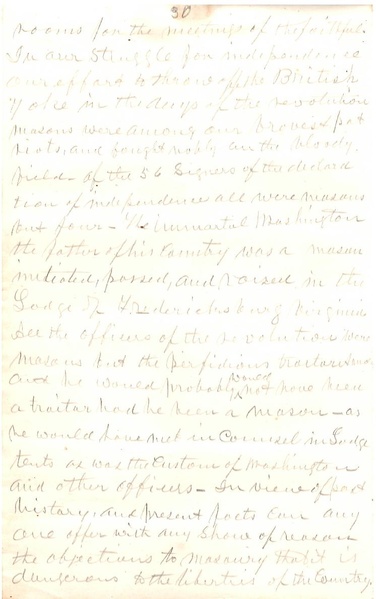 30
rooms for the meetings of the faithful.
In our Struggle for independence
our effort to throw off the British
Yoke in the days of the revolution
masons were among our bravest pat
riots, and fought nobly on the bloody
field - of the 56 Signers of the declara
tion of independence all were masons
but four - The immortal Washington
the father of his Country was a mason
initiated, passed, and raised in the
Lodge of Fredericksburg Virginia
the officers of the revolution were
masons but the perfidious traitor
and he would probably would not have been
a traitor had he been a mason - as
he would have met in Counsel in Lodge
tents as was the Custom of Washington
and other officers - In view of past
history, and present facts can any
one offer with any Show of reason
the objections to masonry that it is
dangerous to the liberties of the Country.